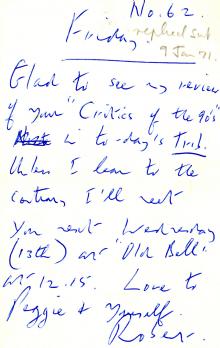 No. 62.
Friday
replied Sat
9 Jan 71.
Glad to see my review
of your "Critics of the 90's"
in to-day's Trib.
Unless I hear to the
contrary I'll meet
you next Wednesday
(13th) at "Old Bell"
at 12.15. Love to
Peggie & yourself.
Roser.